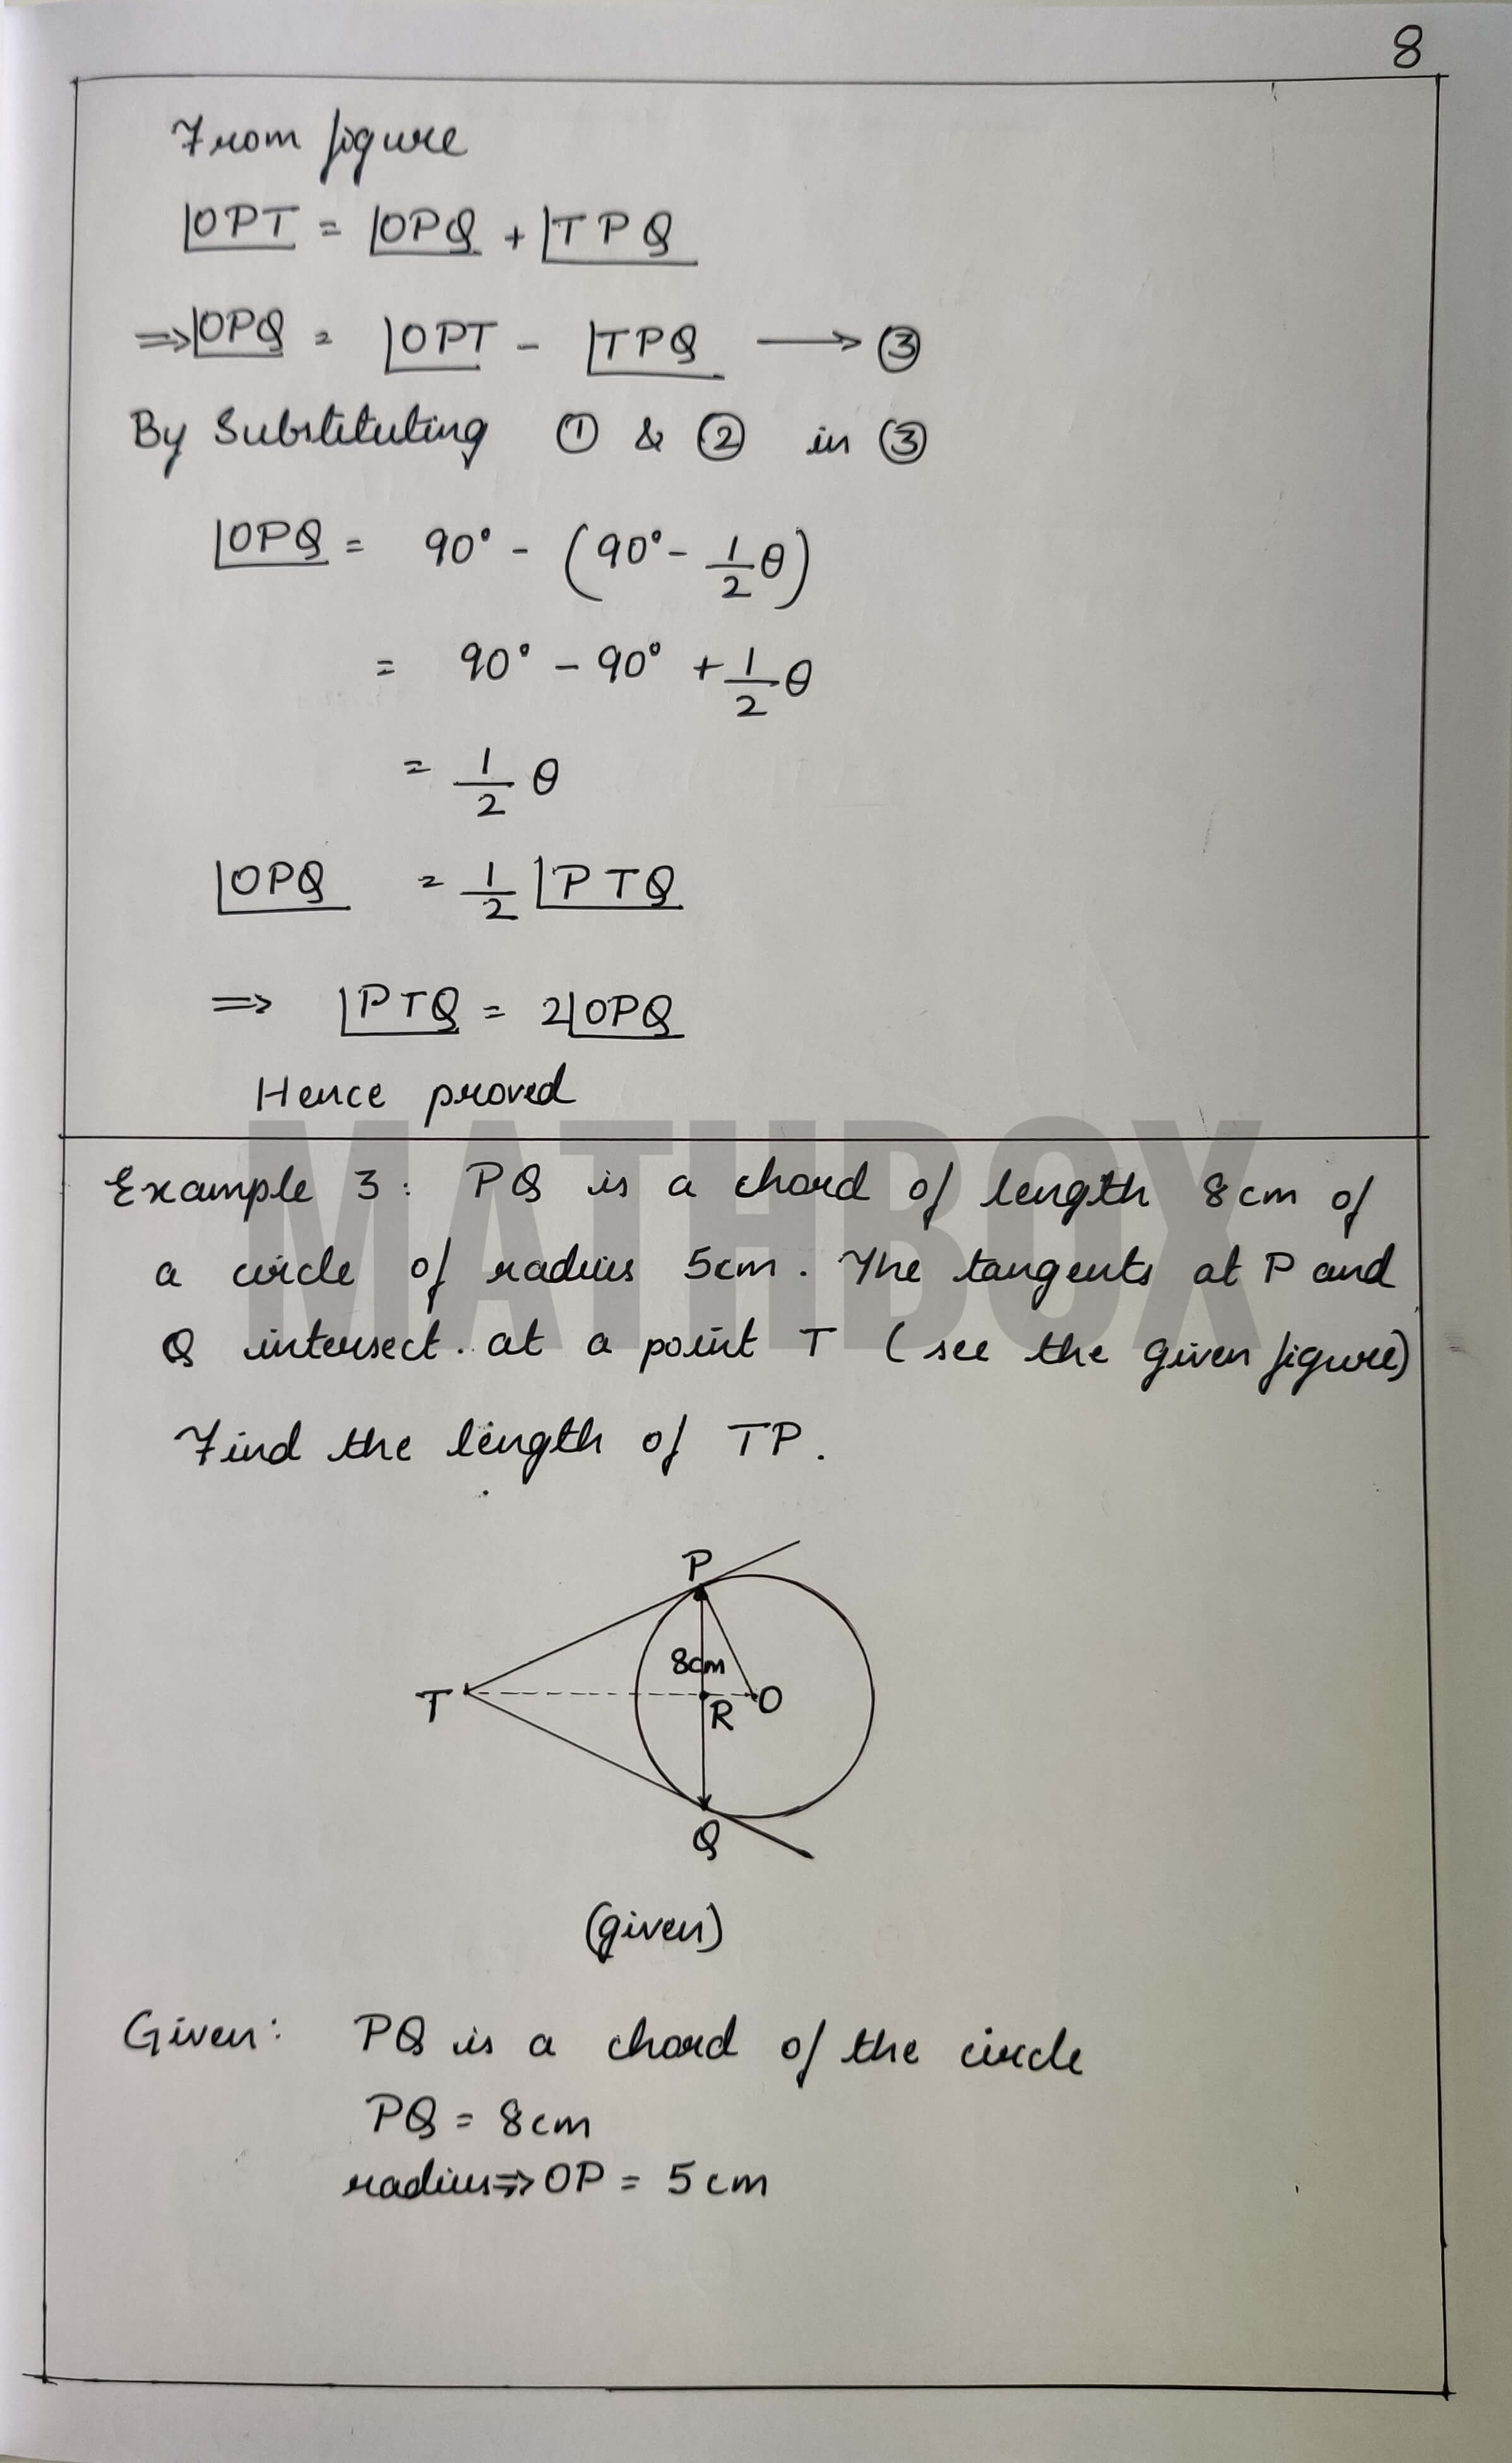 8
From figure
∠OPT = ∠OPQ + ∠TPQ
⇒ ∠OPQ = ∠OPT - ∠TPQ ⟶ ③
By Substituting ① & ② in ③
∠OPQ = 90° - (90° - 1/2 θ)
= 90° - 90° + 1/2 θ
= 1/2 θ
∠OPQ = 1/2 ∠PTQ
⇒ ∠PTQ = 2∠OPQ
Hence proved
MATHBOX
Example 3: PQ is a chord of length 8cm of
a circle of radius 5cm. The tangents at P and
Q intersect. at a point T (see the given figure)
Find the length of TP.
P
8cm
T
R
O
Q
(given)
Given: PQ is a chord of the circle
PQ = 8cm
radius ⇒ OP = 5cm